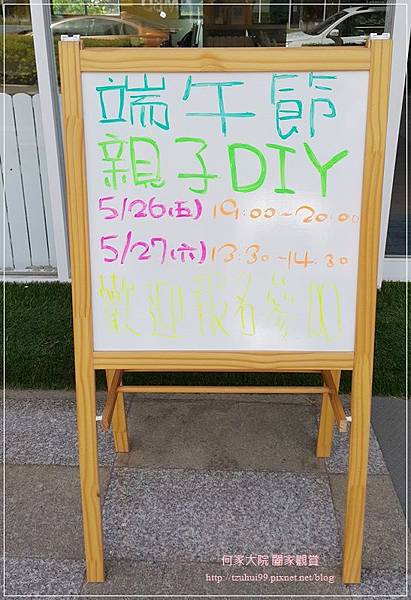 端午節
親子DIY
5/26(五) 19:00~20:00
5/27(六) 13:30~14:30
歡迎報名參加
何家大院 闔家觀賞
http://tzuhui99.pixnet.net/blog